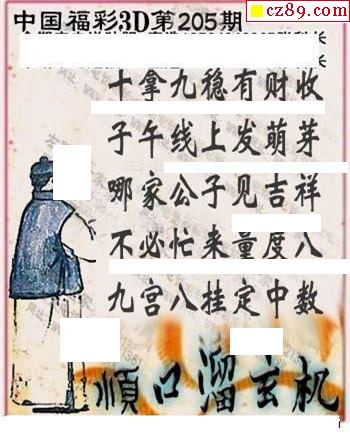 cz89.com
中国福彩3D第205期
十拿九稳有财收
子午线上发萌芽
哪家公子见吉祥
不必忙来量度八
九宫八挂定中数
顺口溜玄机